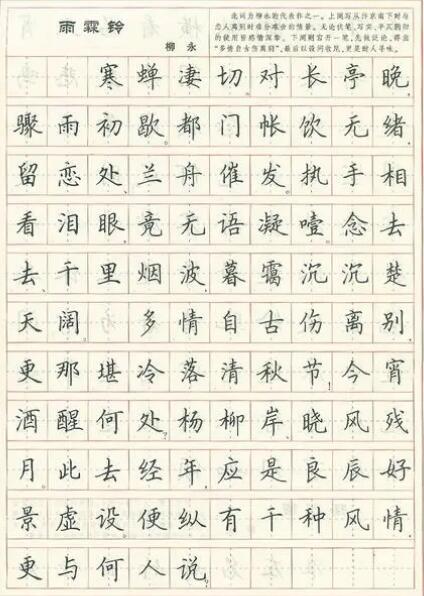 雨霖铃
柳永
此词为柳永的代表作之一。上阕写从汴京南下时与
恋人离别时难分难舍的情景。无论伏笔、写实、
的使用皆感情深挚。下阕则宕开一笔，先做泛论，得出
“多情自古伤离别”，最后以设问收尾，更是耐人寻味。
寒蝉凄切。对长亭晚，
骤雨初歇。都门帐饮无绪，
留恋处、兰舟催发。执手相
看泪眼，竟无语凝噎。念去
去、千里烟波，暮霭沉沉楚
天阔。多情自古伤离别，
更那堪、冷落清秋节！今宵
酒醒何处，杨柳岸、晓风残
月。此去经年，应是良辰好
景虚设。便纵有千种风情，
更与何人说。